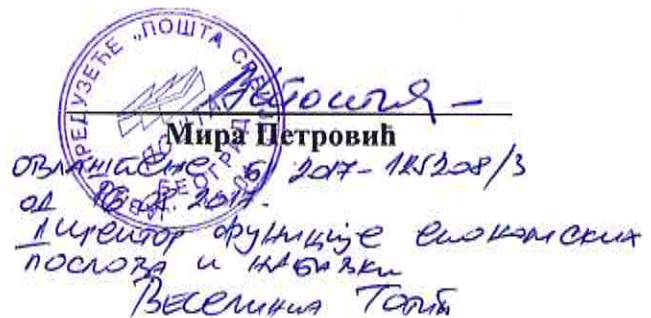 ПРЕДУЗЕЋЕ „ПОШТА СРБИЈЕ
ПОШТА
БЕОГРАД
Мира Петровић
овлашћење бр 2017-125208/3
од 2017.
директор функције економских
послова и набавки
Веселинка Топић